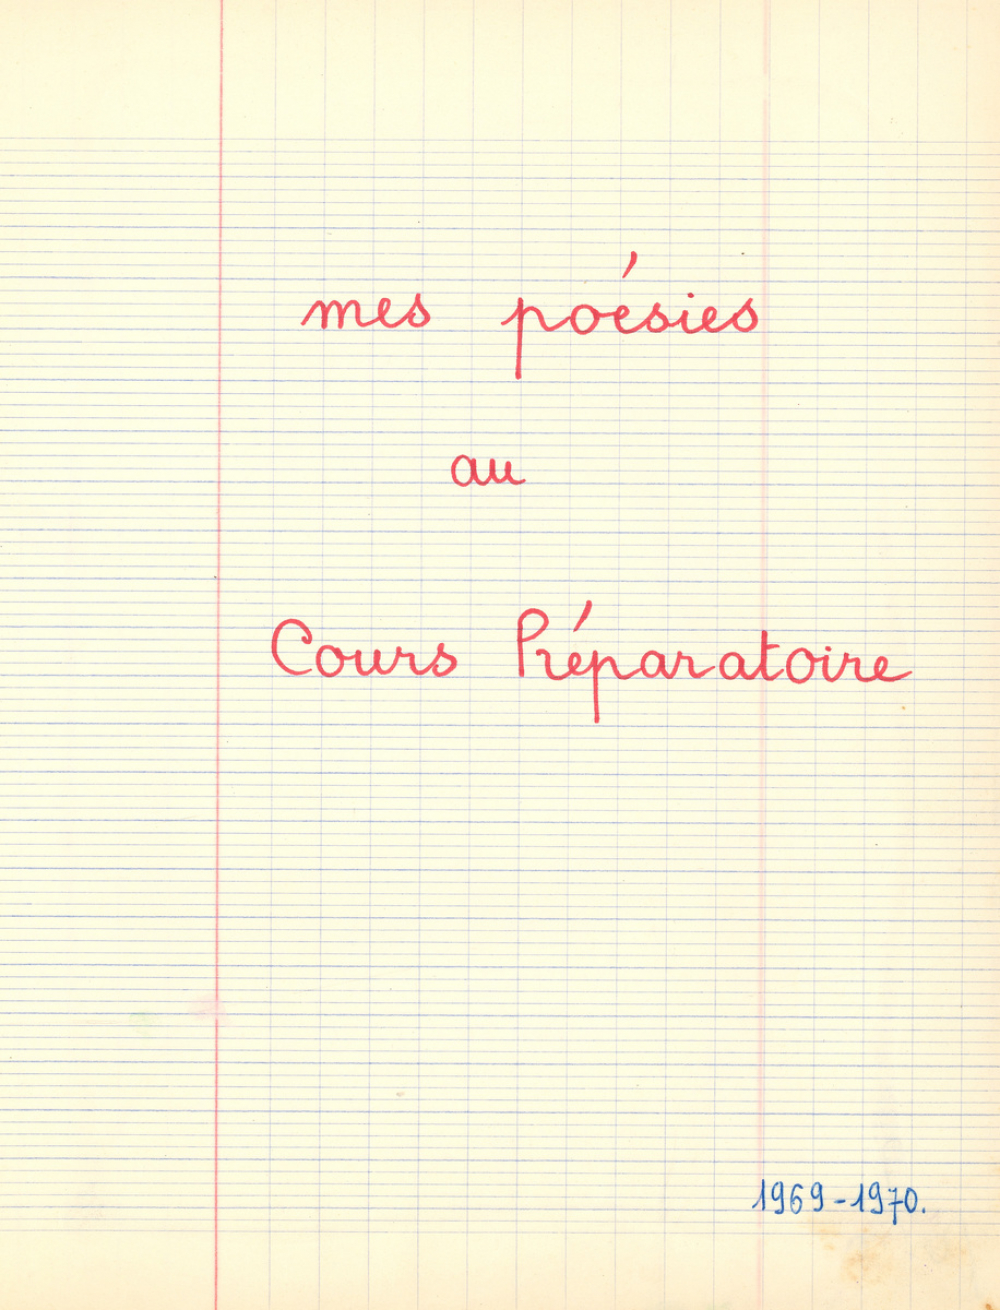 mes poésies
au
Cours Préparatoire
1969-1970.